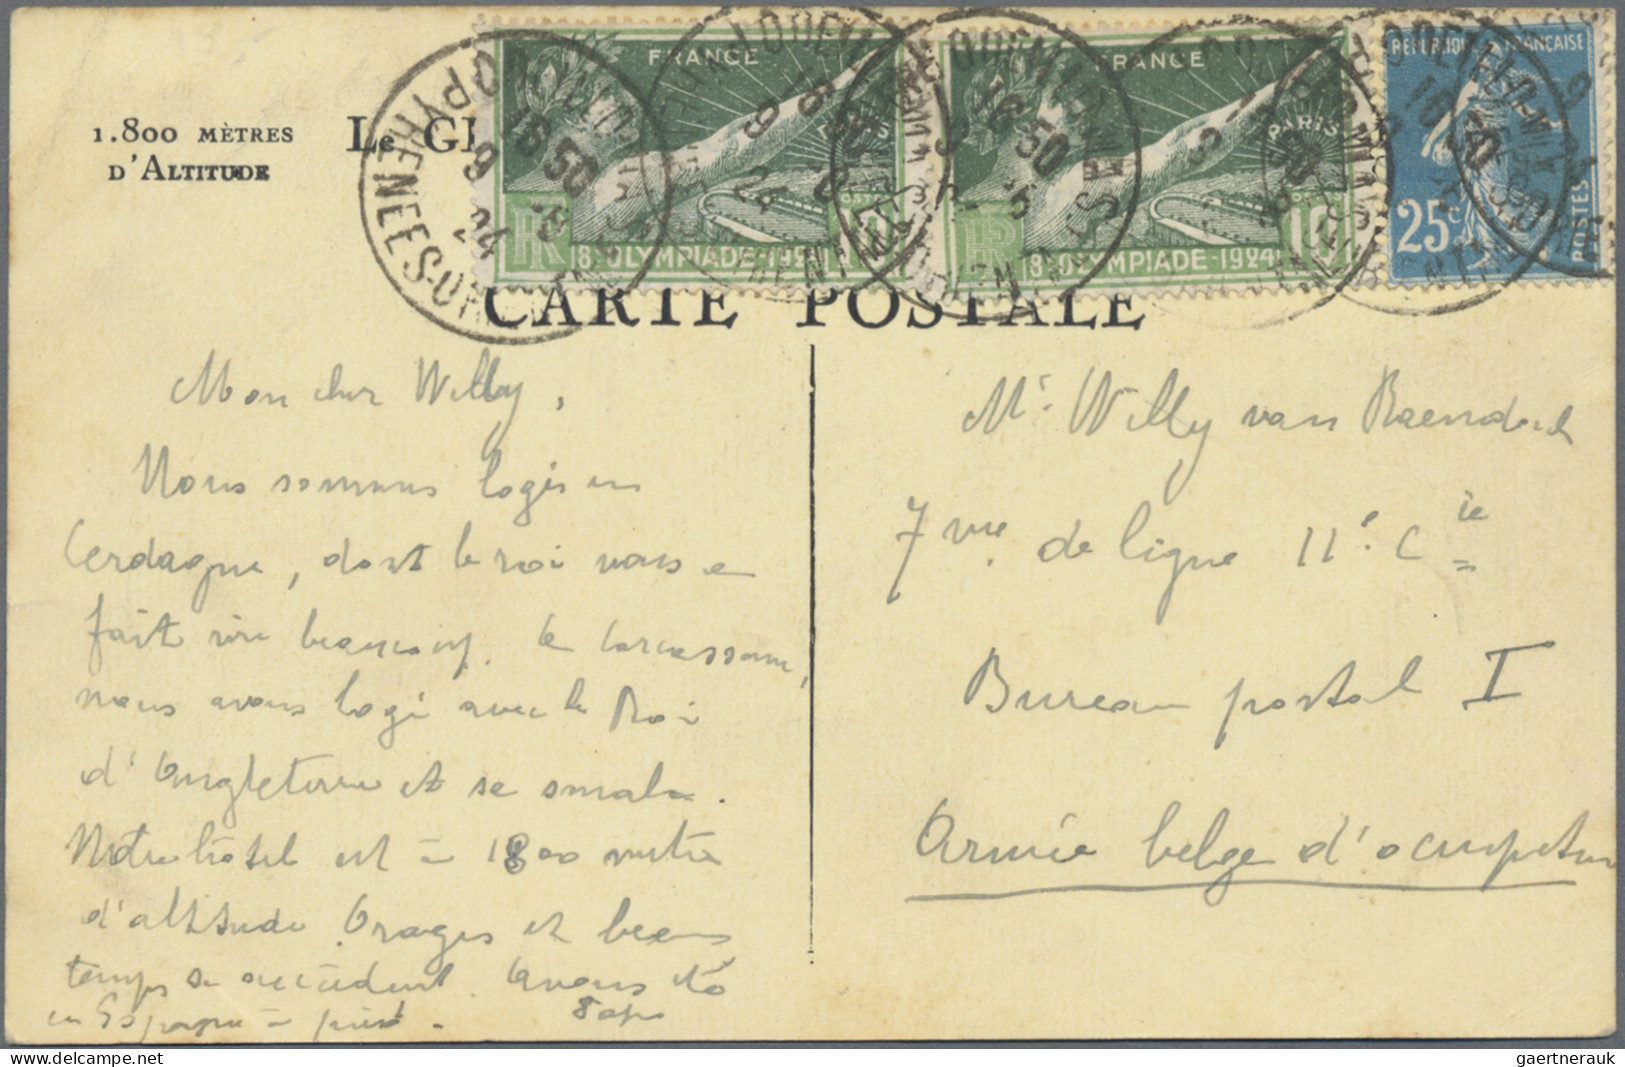 1.800 MÈTRES
D'ALTITUDE
Le G
CARTE POSTALE
FRANCE
PARIS
POSTES
RF
8E OLYMPIADE-1924
10
FRANCE
PARIS
RF
8E OLYMPIADE-1924
10
REPUBLIQUE FRANÇAISE
25c
POSTES
16 50
9 -9
24
PYRENEES-OR
Mon cher Willy,
Nous sommes logés en
Cerdagne, dont le roi nous a
fait rire beaucoup. A Carcassonne,
nous avons logé avec le Roi
d'Angleterre et se smala.
Notre hôtel est à 1800 mètres
d'altitude. Orages et beau
temps se succèdent. Avons été
en Espagne à pied.
Mr. Willy van
7me de ligne 11e Cie
Bureau postal I
Armée belge d'occupation
gaertnerauk